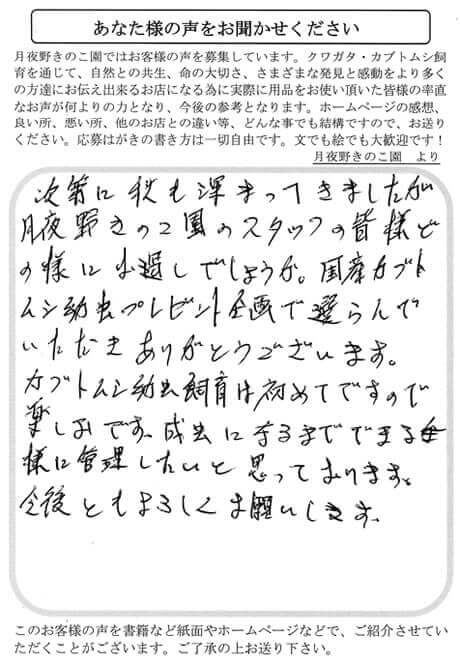 あなた様の声をお聞かせください
月夜野きのこ園ではお客様の声を募集しています。クワガタ・カブトムシ飼
育を通じて、自然との共生、命の大切さ、さまざまな発見と感動をより多く
の方達にお伝え出来るお店になる為に実際に用品をお使い頂いた皆様の率直
なお声が何よりの力となり、今後の参考となります。ホームページの感想、
良い所、悪い所、他のお店との違い等、どんな事でも結構ですので、お送り
ください。応募はがきの書き方は一切自由です。文でも絵でも大歓迎です！
月夜野きのこ園 より
次第に秋も深まってきましたが
月夜野きのこ園のスタッフの皆様ど
の様にお過しでしょうか。国産カブト
ムシ幼虫プレゼント企画で選らんで
いただきありがとうございます。
カブトムシ幼虫飼育は初めてですので
楽しみです。成虫になるまでできる
様に管理したいと思っております。
今後ともよろしくお願いします。
このお客様の声を書籍など紙面やホームページなどで、ご紹介させてい
ただくことがございます。ご了承の上お送り下さい。